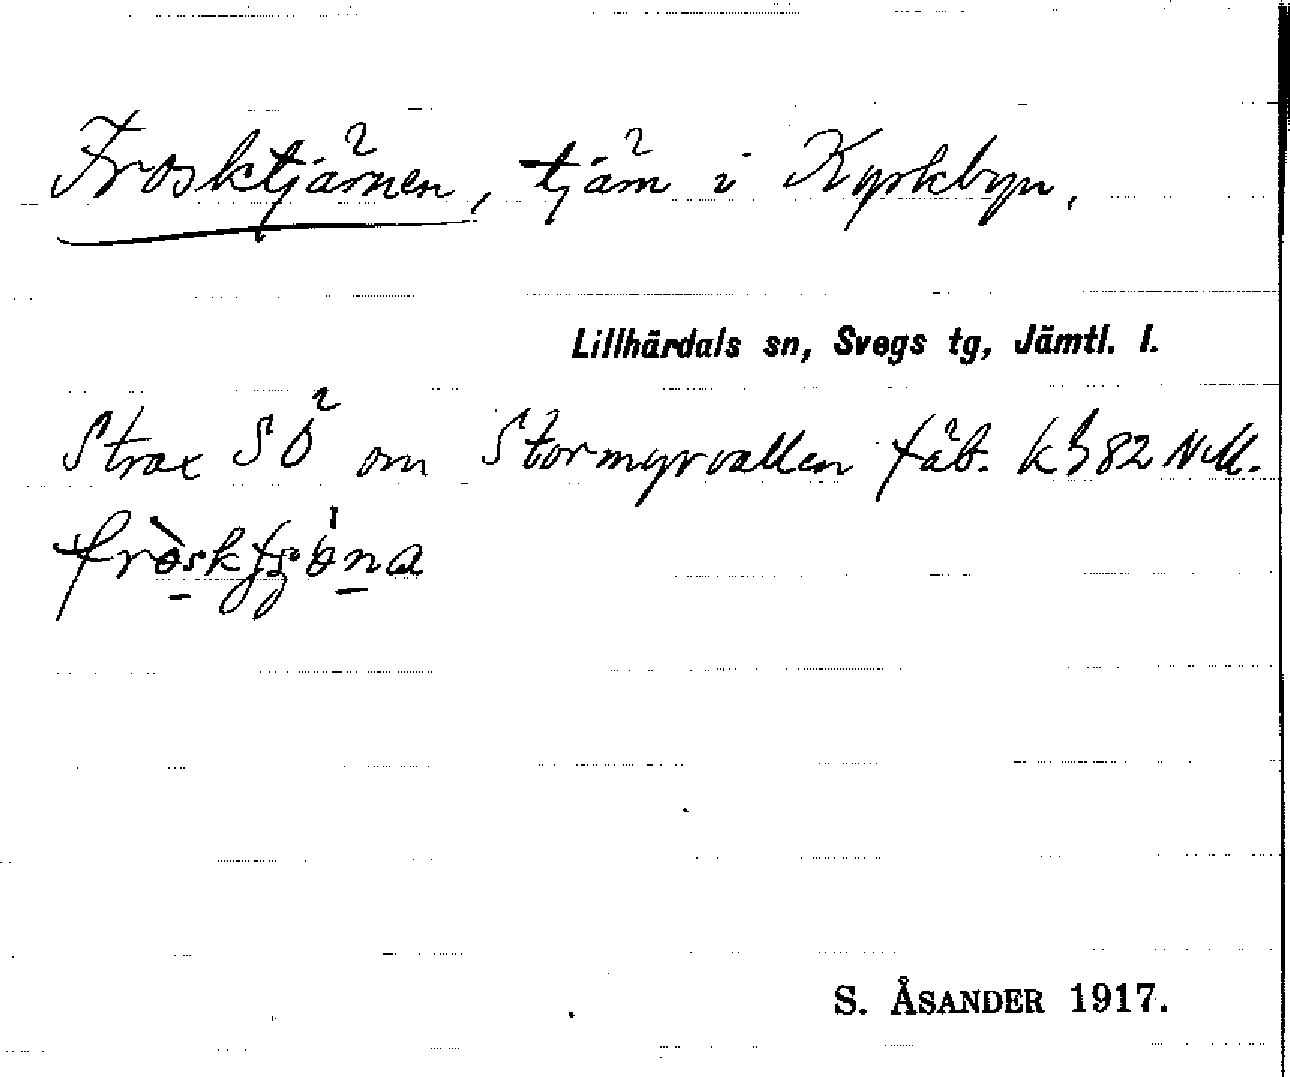 Frosktjärnen, tjärn i Kyrkbyn.
Lillhärdals sn, Svegs tg, Jämtl. l.
Strax SÖ om Stormyrvallen fäb. 82 N.M.
S. ÅSANDER 1917.